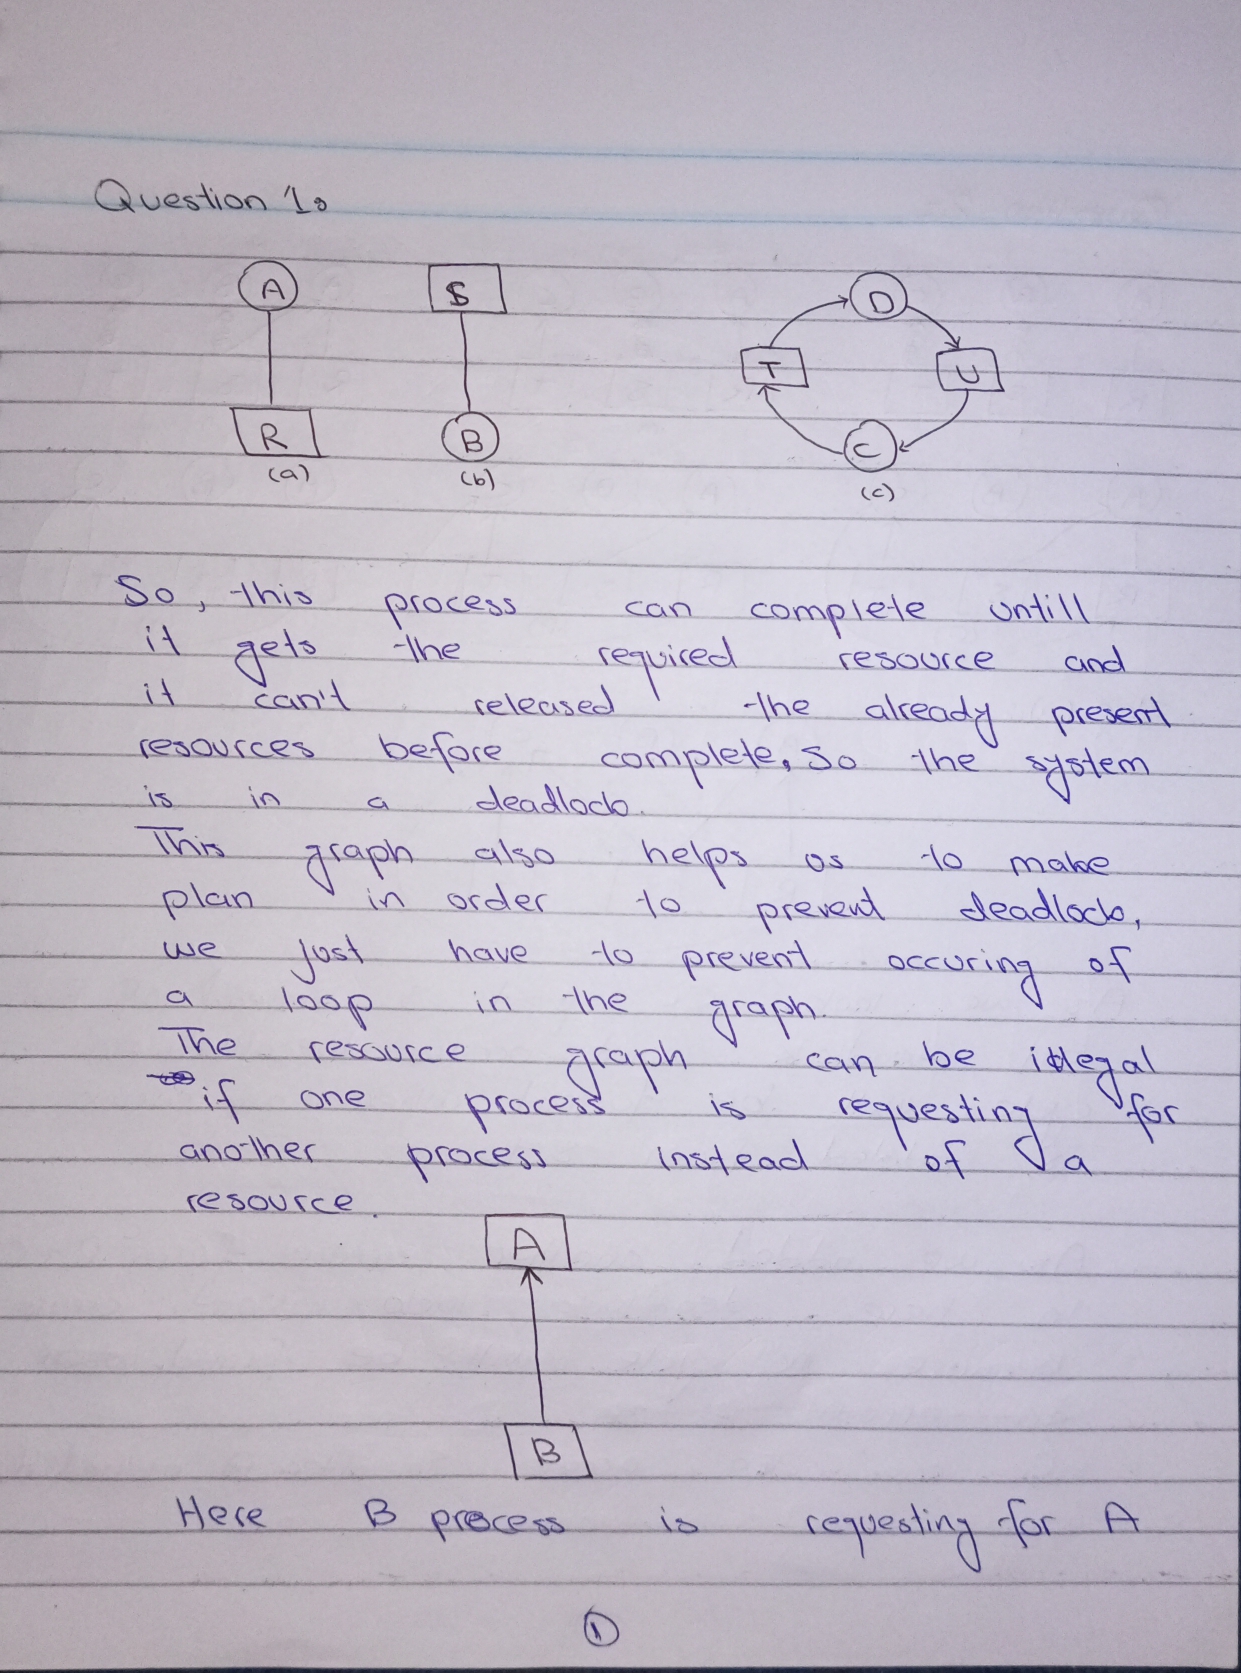 Question 1:
A S D
T U
R B C
(a) (b) (c)
So, this process can complete untill
it gets the required resource and
it can't released the already present
resources before complete, So the system
is in a deadlock.
This graph also helps us to make
plan in order to prevent deadlock,
we just have to prevent occuring of
a loop in the graph.
The resource graph can be illegal
if one process is requesting for
another process instead of a
resource.
A
B
Here B process is requesting for A
1